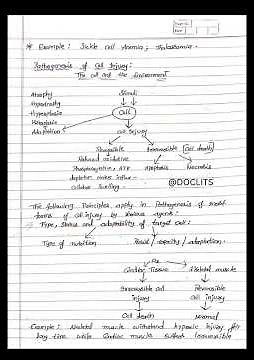 * Example: Sickle cell Anemia; Thalassemia.
Pathogenesis of Cell Injury:
The cell and the Environment
Atrophy Stimuli
Hypertrophy
Hyperplasia Cell
Metaplasia
Adaptation Cell Injury
Reversible Irreversible (Cell death)
Reduced oxidative
Phosphorylation, ATP Apoptosis Necrosis
depletion causes influx
Cellular Swelling. @DOCLITS
The following Principles apply in Pathogenesis of most
forms of cell injury by various agents:
Type, Status and adaptability of target Cell:
Type of nutrition
Cardiac Tissue Skeletal muscle
Irreversible cell Reversible
injury Cell injury
Cell death Normal
Example: Skeletal muscle withstand hypoxic injury for
long time while Cardiac muscle suffers irreversible